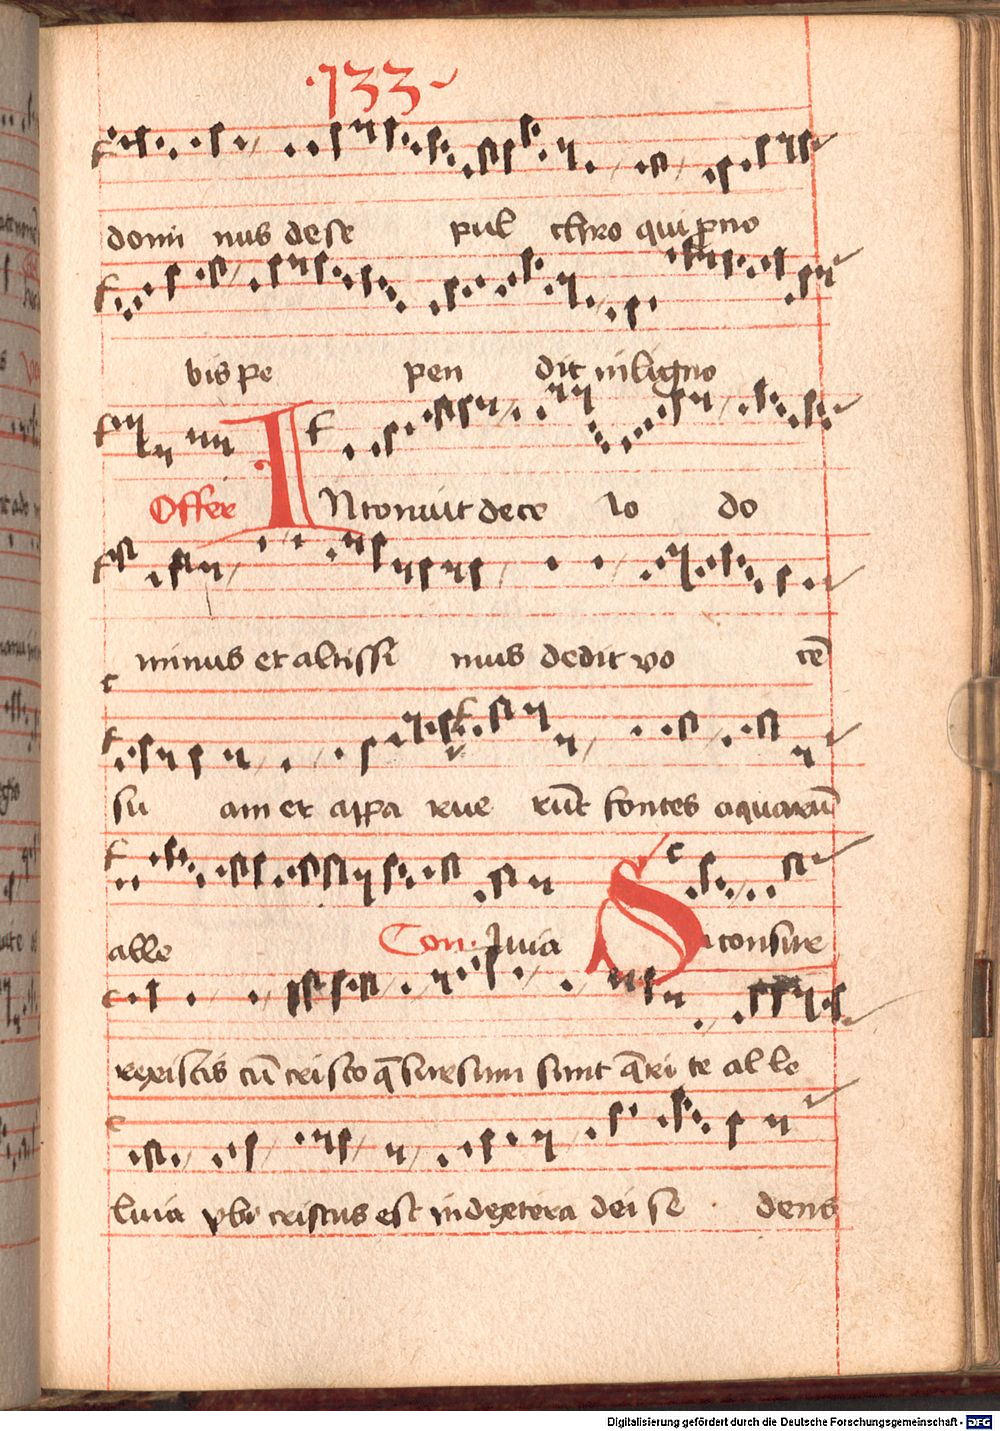 ·133
domi nus de se pul chro qui pno
bis pe pen dit in ligno
Offer INtonuit de ce lo do
minus et altissi mus dedit vo cē
su am et appa rue rūt fontes aquarū
alle luia Con. Si consurre
rexistis cū cristo q̄ sursum sunt q̄ri te al le
luia vbi cristus est in dextera dei se dens
Digitalisierung gefördert durch die Deutsche Forschungsgemeinschaft - DFG